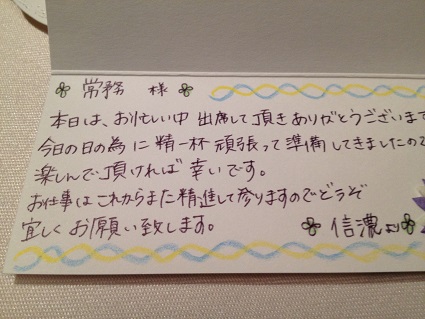 常務 様
本日は、お忙しい中 出席して頂きありがとうございます
今日の日の為に精一杯頑張って準備してきましたので
楽しんで頂ければ幸いです。
お仕事はこれからまた精進して参りますのでどうぞ
宜しくお願い致します。
信濃より